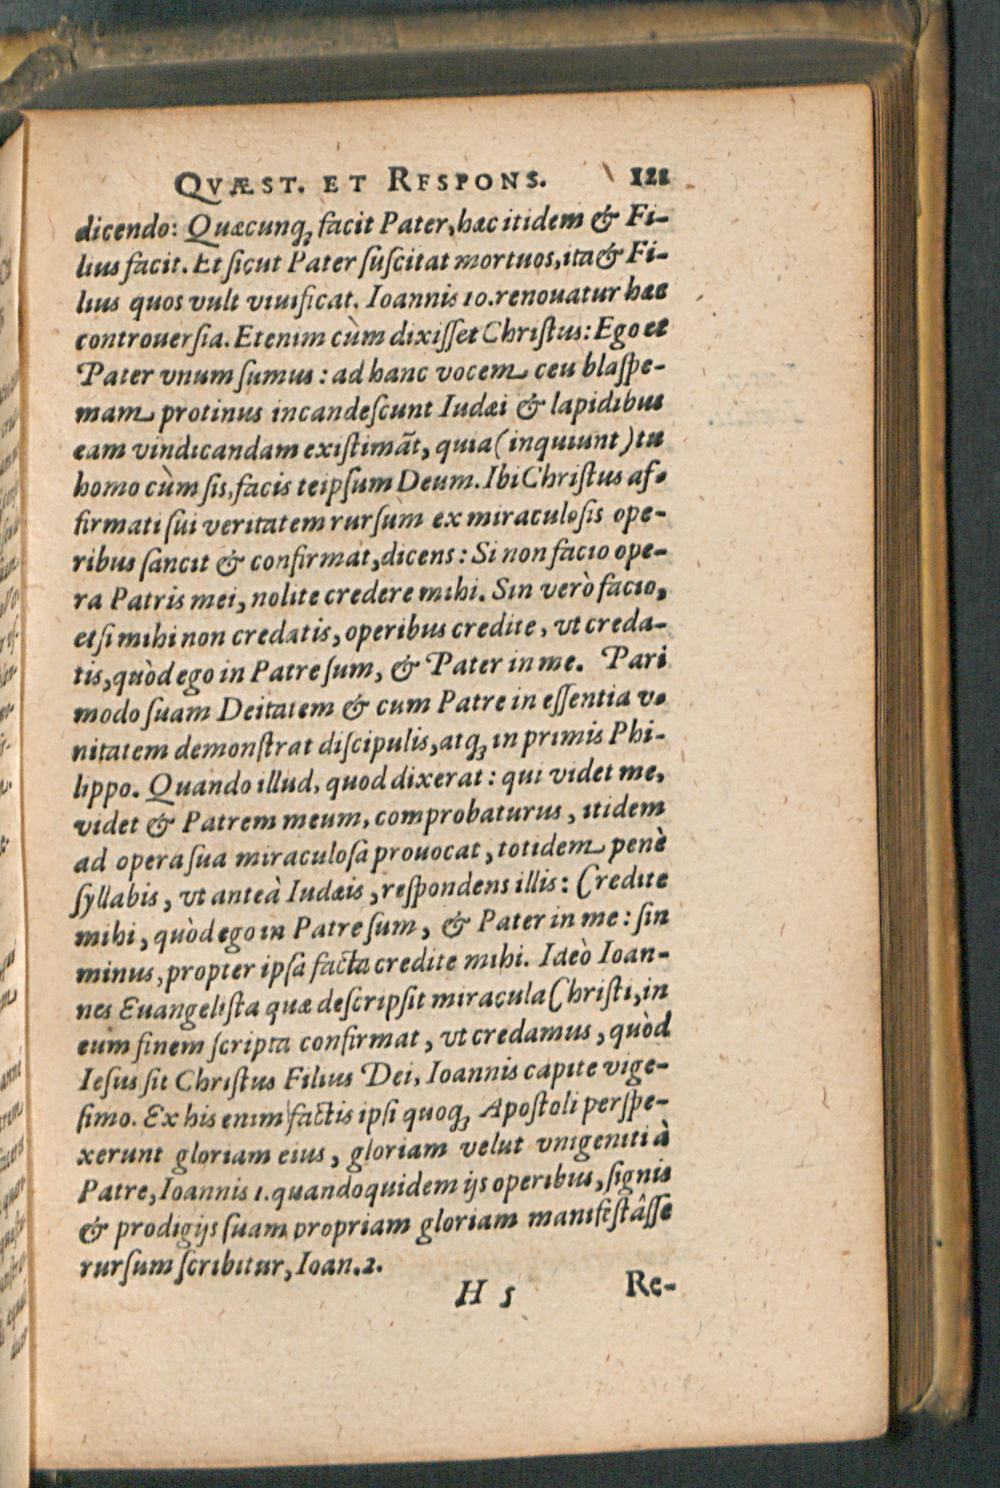 QVÆST. ET RESPONS. 121
dicendo: Quæcunq; facit Pater, hæc itidem & Fi-
lius facit. Et sicut Pater suscitat mortuos, ita & Fi-
lius quos vult viuificat. Ioannis 10. renouatur hæc
controuersia. Etenim cùm dixisset Christus: Ego et
Pater vnum sumus: ad hanc vocem ceu blaspe-
mam protinus incandescunt Iudæi & lapidibus
eam vindicandam existimãt, quia (inquiunt) tu
homo cùm sis, facis teipsum Deum. Ibi Christus af-
firmati sui veritatem rursum ex miraculosis ope-
ribus sancit & confirmat, dicens: Si non facio ope-
ra Patris mei, nolite credere mihi. Sin verò facio,
etsi mihi non credatis, operibus credite, vt creda-
tis, quòd ego in Patre sum, & Pater in me. Pari
modo suam Deitatem & cum Patre in essentia v-
nitatem demonstrat discipulis, atq; in primis Phi-
lippo. Quando illud, quod dixerat: qui videt me,
videt & Patrem meum, comprobaturus, itidem
ad opera sua miraculosa prouocat, totidem penè
syllabis, vt anteà Iudæis, respondens illis: Credite
mihi, quòd ego in Patre sum, & Pater in me: sin
minus, propter ipsa facta credite mihi. Ideò Ioan-
nes Euangelista quæ descripsit miracula Christi, in
eum finem scripta confirmat, vt credamus, quòd
Iesus sit Christus Filius Dei, Ioannis capite vige-
simo. Ex his enim factis ipsi quoq; Apostoli perspe-
xerunt gloriam eius, gloriam velut vnigeniti à
Patre, Ioannis 1. quandoquidem ijs operibus, signis
& prodigijs suam propriam gloriam manifestâsse
rursum scribitur, Ioan. 2.
H 5 Re-